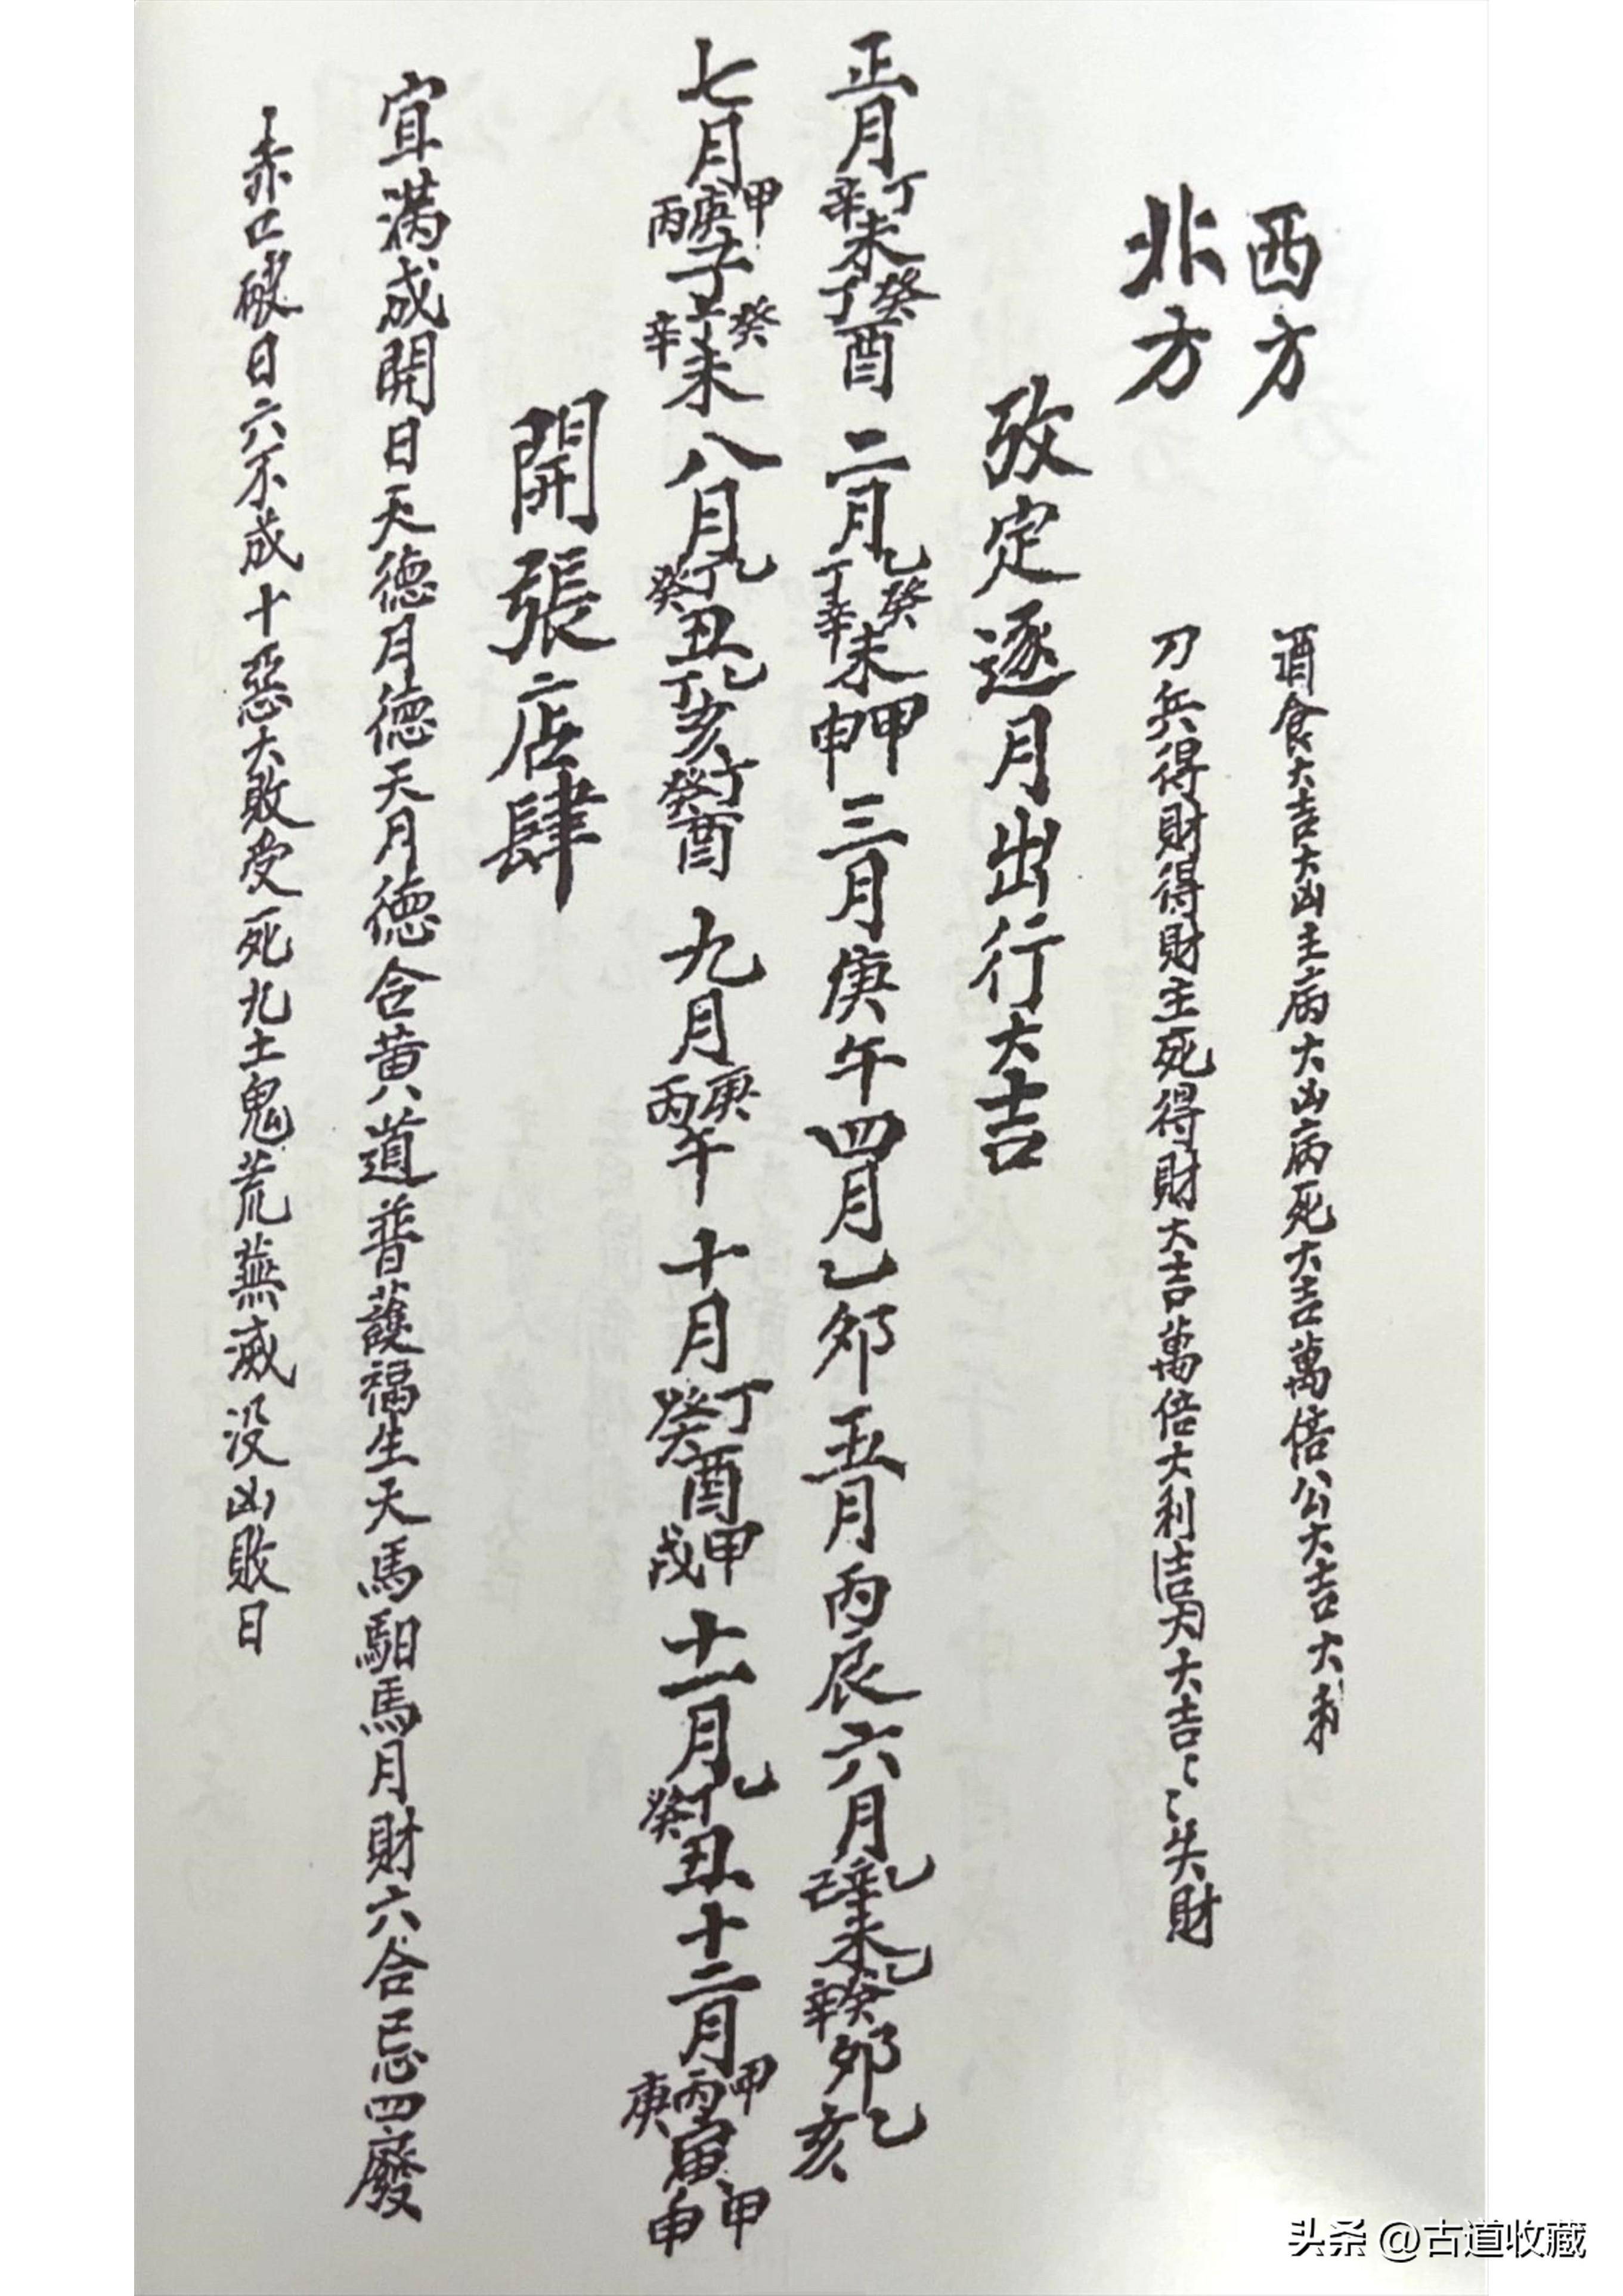 西方 酒食大吉大凶主病大凶病死大吉萬倍公大吉大利
北方 刀兵得財得財主死得財大吉萬倍大利大吉失財
攷定逐月出行大吉
正月丁辛未癸丁酉二月乙癸丁辛未甲申三月庚午四月乙卯五月丙辰六月乙辛己未乙癸辛卯乙亥
七月甲庚丙子癸丁辛未八月乙丁癸丑乙丁亥丁癸酉九月庚丙午十月丁癸酉甲戌十一月乙丁癸丑十二月甲丙庚寅甲申
開張店肆
宜滿成開日天德月德天月德合黃道普護福生天馬馹馬月財六合忌四廢
赤口破日六不成十惡大敗受死九土鬼荒蕪滅没凶敗日
头条 @古道收藏